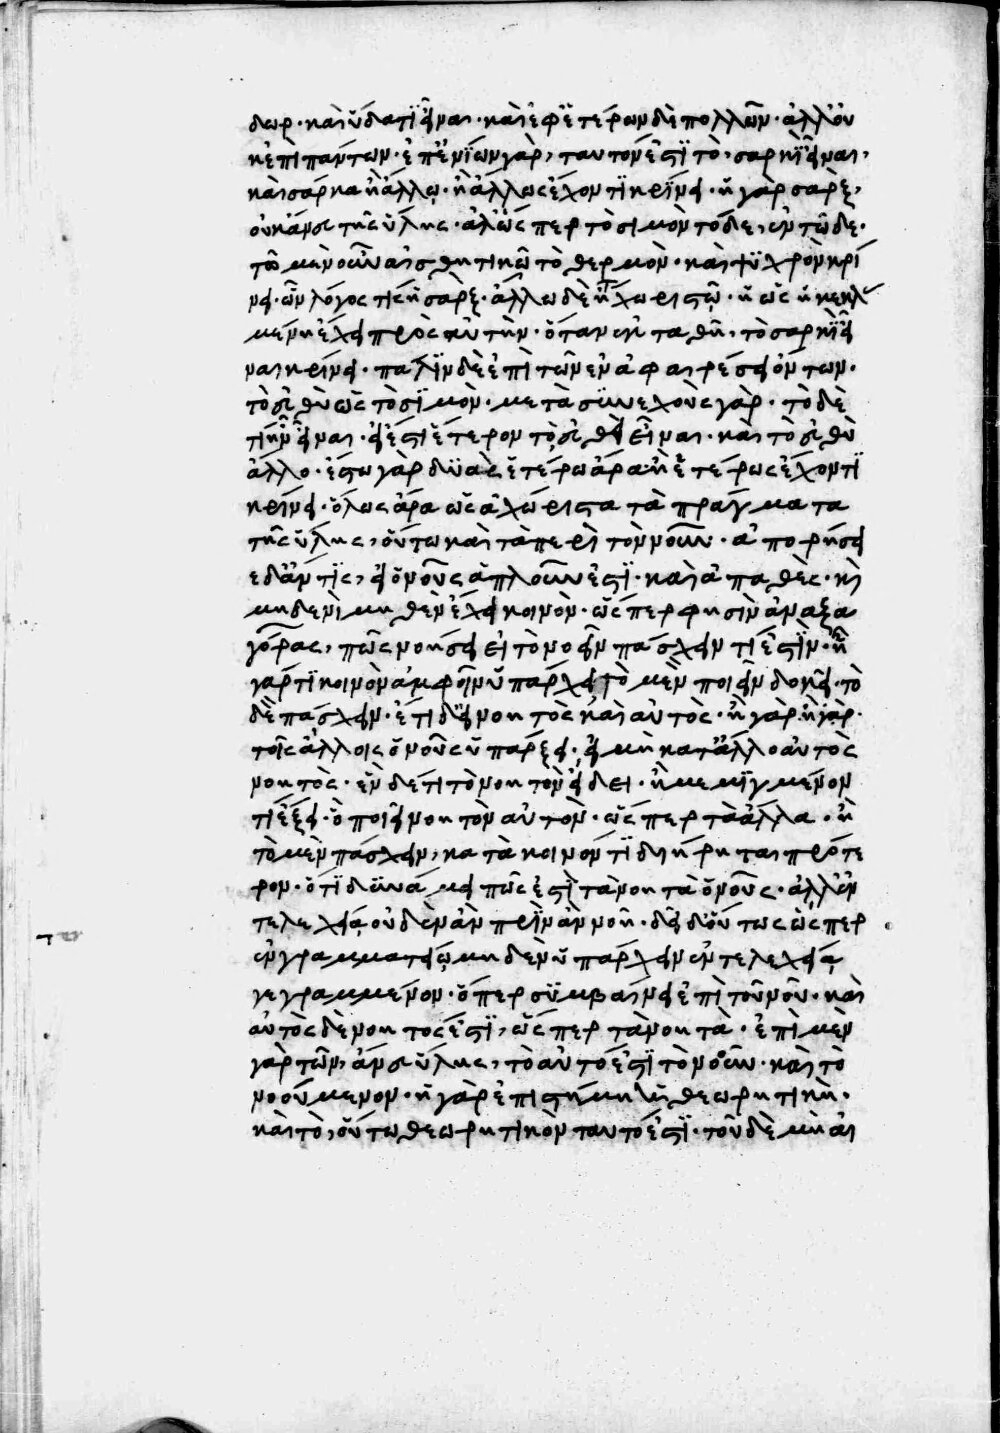 δωρ· καὶ ὕδατϊ εἶναι· καὶ ἐφ ἑτέρων δὲ πολλῶν· ἀλλ οὐ
κ ἐπὶ πάντων· ἐπ ἐνΐων γὰρ, ταυτόν ἐστϊ τὸ, σαρκὶ εἶναι,
καὶ σάρκα ἢ ἄλλῳ· ἢ ἄλλως ἔχοντϊ κρίνει· ἡ γὰρ σὰρξ,
οὐκ ἄνευ τῆς ὕλης· ἀλ ὥσπερ τὸ σιμὸν τόδε, ἐν τῶδε·
τῶ μὲν οὖν αἰσθητικῶ τὸ θερμὸν· καὶ ψϋχρὸν κρί
νει· ὧν λόγος τις ἡ σὰρξ· ἄλλω δὲ ἤ χωριστῶ· ἢ ὡς ἡ κεκλα
μένη ἔχει πρὸς αὑτὴν· ὅταν ἐκταθῆ, τὸ σαρκὶ εἶ
ναι κρίνει· πάλϊν δὲ ἐπὶ τῶν ἐν ἀφαιρέσει ὄντων·
τὸ εὐθὺ ὡς τὸ σϊμὸν· μετὰ σϋνεχοὺς γάρ· τὸ δὲ
τί ἦν εἶναι· εἰ ἔστϊ ἕτερον τὸ εὐθεῖ εἶναι· καὶ τὸ εὐθὺ
ἄλλο· ἔστω γὰρ δϋάς ἑτέρω ἄρα ἢ ἑτέρως ἔχοντϊ
κρίνει· ὅλως ἄρα ὡς χώριστα τὰ πράγματα
τῆς ὕλης, οὕτω καὶ τὰ περὶ τὸν νοῦν· ἀπορήσει
ε δ ἄν τϊς, εἰ ὁ νοῦς ἁπλοῦν ἐστϊ· καὶ ἀπαθὲς· κὶ
μηδενὶ μηθὲν ἔχει κοινὸν· ὥσπερ φησὶν ἀναξα
γόρας, πῶς νοήσει εἰ τὸ νοεῖν πάσχειν τί ἐστϊν· ἧ
γάρ τϊ κοινὸν ἀμφοῖν ὑπάρχει τὸ μὲν ποιεῖν δοκεῖ· τὸ
δὲ πάσχειν· ἔτι δ εἰ νοητὸς καὶ αὐτὸς· ἢ γὰρ ἢ γὰρ·
τοῖς ἄλλοις ὁ νοῦς ὑπάρξει· εἰ μὴ κατ ἄλλο αὐτὸς
νοητὸς· ἓν δέ τι τὸ νοητὸν εἴδει· ἢ μεμϊγμένον
τί ἕξει· ὃ ποιεῖ νοητὸν αὐτὸν· ὥσπερ τὰ ἄλλα· ἢ
τὸ μὲν πάσχειν, κατὰ κοινόν τϊ διήρηται πρότε
ρον· ὅτϊ δϋνάμει πῶς ἐστϊ τὰ νοητὰ ὁ νοῦς· ἀλλ ἐν
τελεχείᾳ οὐδὲν ἂν πρὶν ἂν νοῆ· δεῖ δ οὕτως ὡςπερ
ἐν γραμματείω μηδὲν ὑπάρχειν ἐντελεχείᾳ
γεγραμμένον· ὅπερ σϋμβαίνει ἐπὶ τοῦ νοῦ· καὶ
αὐτὸς δὲ νοητός ἐστϊ, ὥσπερ τὰ νοητὰ· ἐπὶ μὲν
γὰρ τῶν, ἄνευ ὕλης, τὸ αὐτό ἐστϊ τὸ νοοῦν· καὶ τὸ
νοούμενον· ἡ γὰρ ἐπιστήμη ἡ θεωρητικὴ·
καὶ τὸ, οὕτω θεωρητικὸν ταυτό ἐστϊ· τοῦ δὲ μὴ ἀι